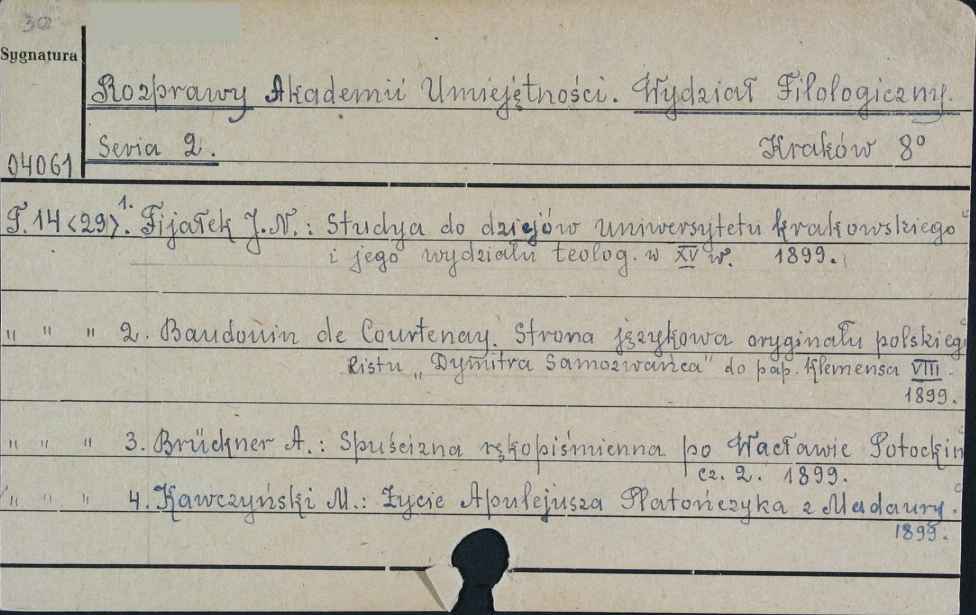 30
Sygnatura
Rozprawy Akademii Umiejętności. Wydział Filologiczny.
Seria 2. Kraków 8°
04061
T. 14 <29>. 1. Fijałek J.N.: Studya do dziejów uniwersytetu krakowskiego
i jego wydziału teolog. w XV w. 1899.
" " " 2. Baudouin de Courtenay. Strona językowa oryginału polskieg
Listu „Dymitra Samozwańca" do pap. Klemensa VIII.
1899.
" " " 3. Brückner A.: Spuścizna rękopiśmienna po Wacławie Potockim
cz. 2. 1899.
" " " 4. Kawczyński M.: Życie Apulejusza Płatończyka z Madaury.
1899.